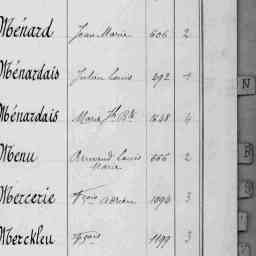 Ménard Jean Marie 606 2
Ménardais Julien Louis 292 1
Ménardais Marie Th. Bte 1548 4
Menu Armand Louis Marie 666 2
Mercerie Fçois Adrien 1094 3
Merckleu Fçois 1199 3
N